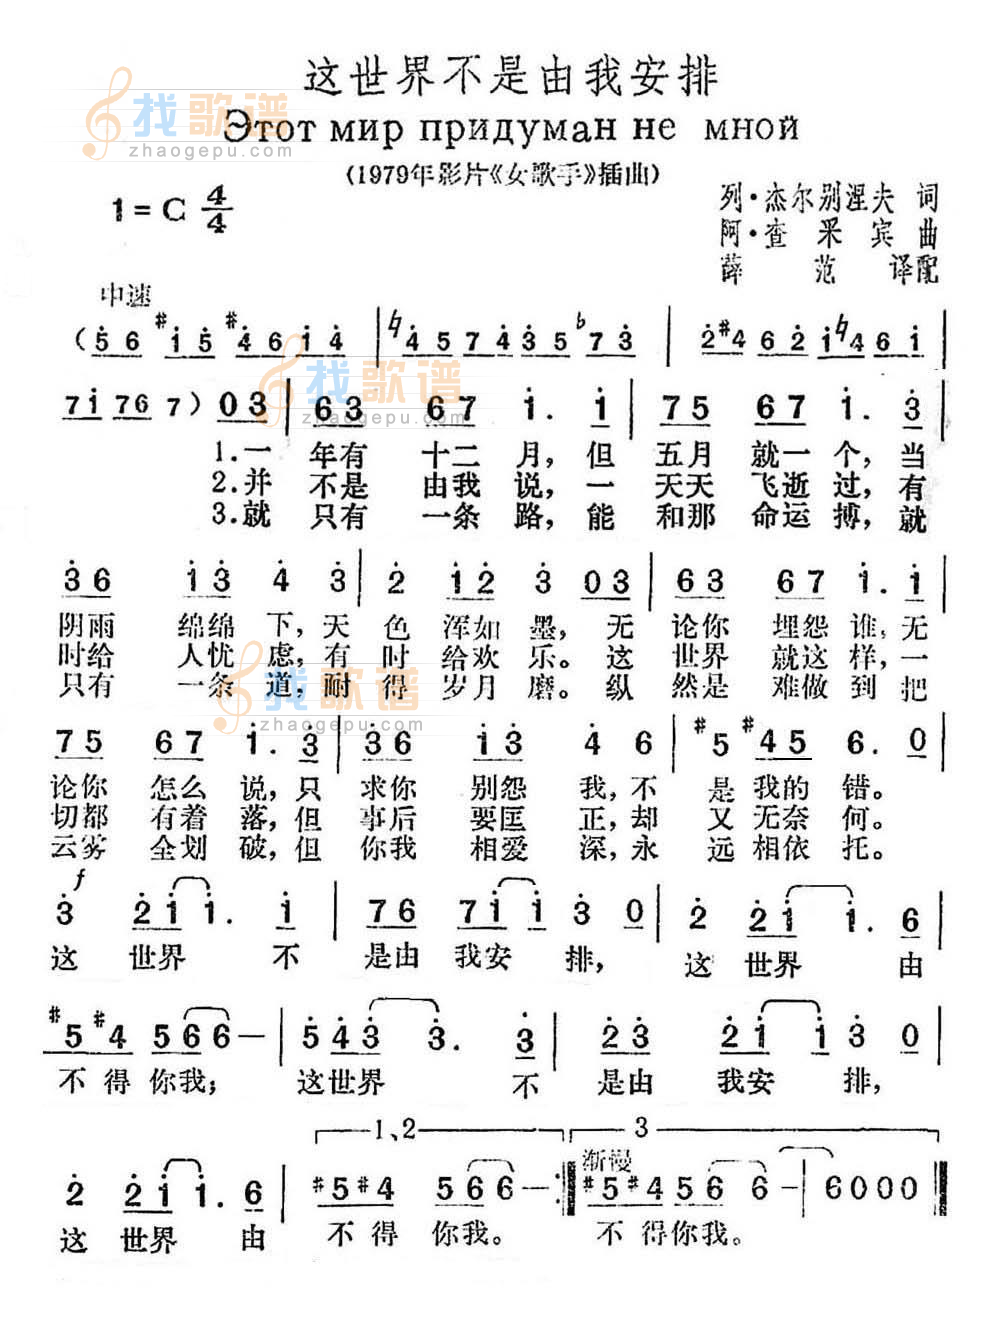 这世界不是由我安排
Этот мир придуман не мной
(1979年影片《女歌手》插曲)
1=C 4/4
列·杰尔别涅夫 词
阿·查采宾 曲
薛范 译配
中速
找歌谱
zhaogepu.com
(5 6 #1 5 #4 6 1 4 | ♮4 5 7 4 3 5 ♭7 3 | 2 #4 6 2 1 ♮4 6 1 |
7 1 7 6 7) 0 3 | 6 3 6 7 1. 1 | 7 5 6 7 1. 3 |
1.一 年有 十二 月,但 五月 就一 个,当
2.并 不是 由我 说,一 天天 飞逝 过,有
3.就 只有 一条 路,能 和那 命运 搏,就
3 6 1 3 4 3 | 2 1 2 3 0 3 | 6 3 6 7 1. 1 |
阴雨 绵绵 下,天 色 浑如 墨,无 论你 埋怨 谁,无
时给 人忧 虑,有 时 给欢 乐。这 世界 就这 样,一
只有 一条 道,耐 得 岁月 磨。纵 然是 难做 到 把
找歌谱
zhaogepu.com
7 5 6 7 1. 3 | 3 6 1 3 4 6 | #5 #4 5 6. 0 |
论你 怎么 说,只 求你 别怨 我,不 是 我的 错。
切都 有着 落,但 事后 要匡 正,却 又 无奈 何。
云雾 全划 破,但 你我 相爱 深,永 远 相依 托。
f
3 2 1 1. 1 | 7 6 7 1 1 3 0 | 2 2 1 1. 6 |
这 世界 不 是由 我安 排, 这 世界 由
#5 #4 5 6 6 — | 5 4 3 3. 3 | 2 3 2 1 1 3 0 |
不 得 你我; 这世界 不 是由 我安 排,
1、2 3
渐慢
2 2 1 1. 6 | #5 #4 5 6 6 — :‖ #5 #4 5 6 6 — | 6 0 0 0 ‖
这 世界 由 不 得 你我。 不 得你我。